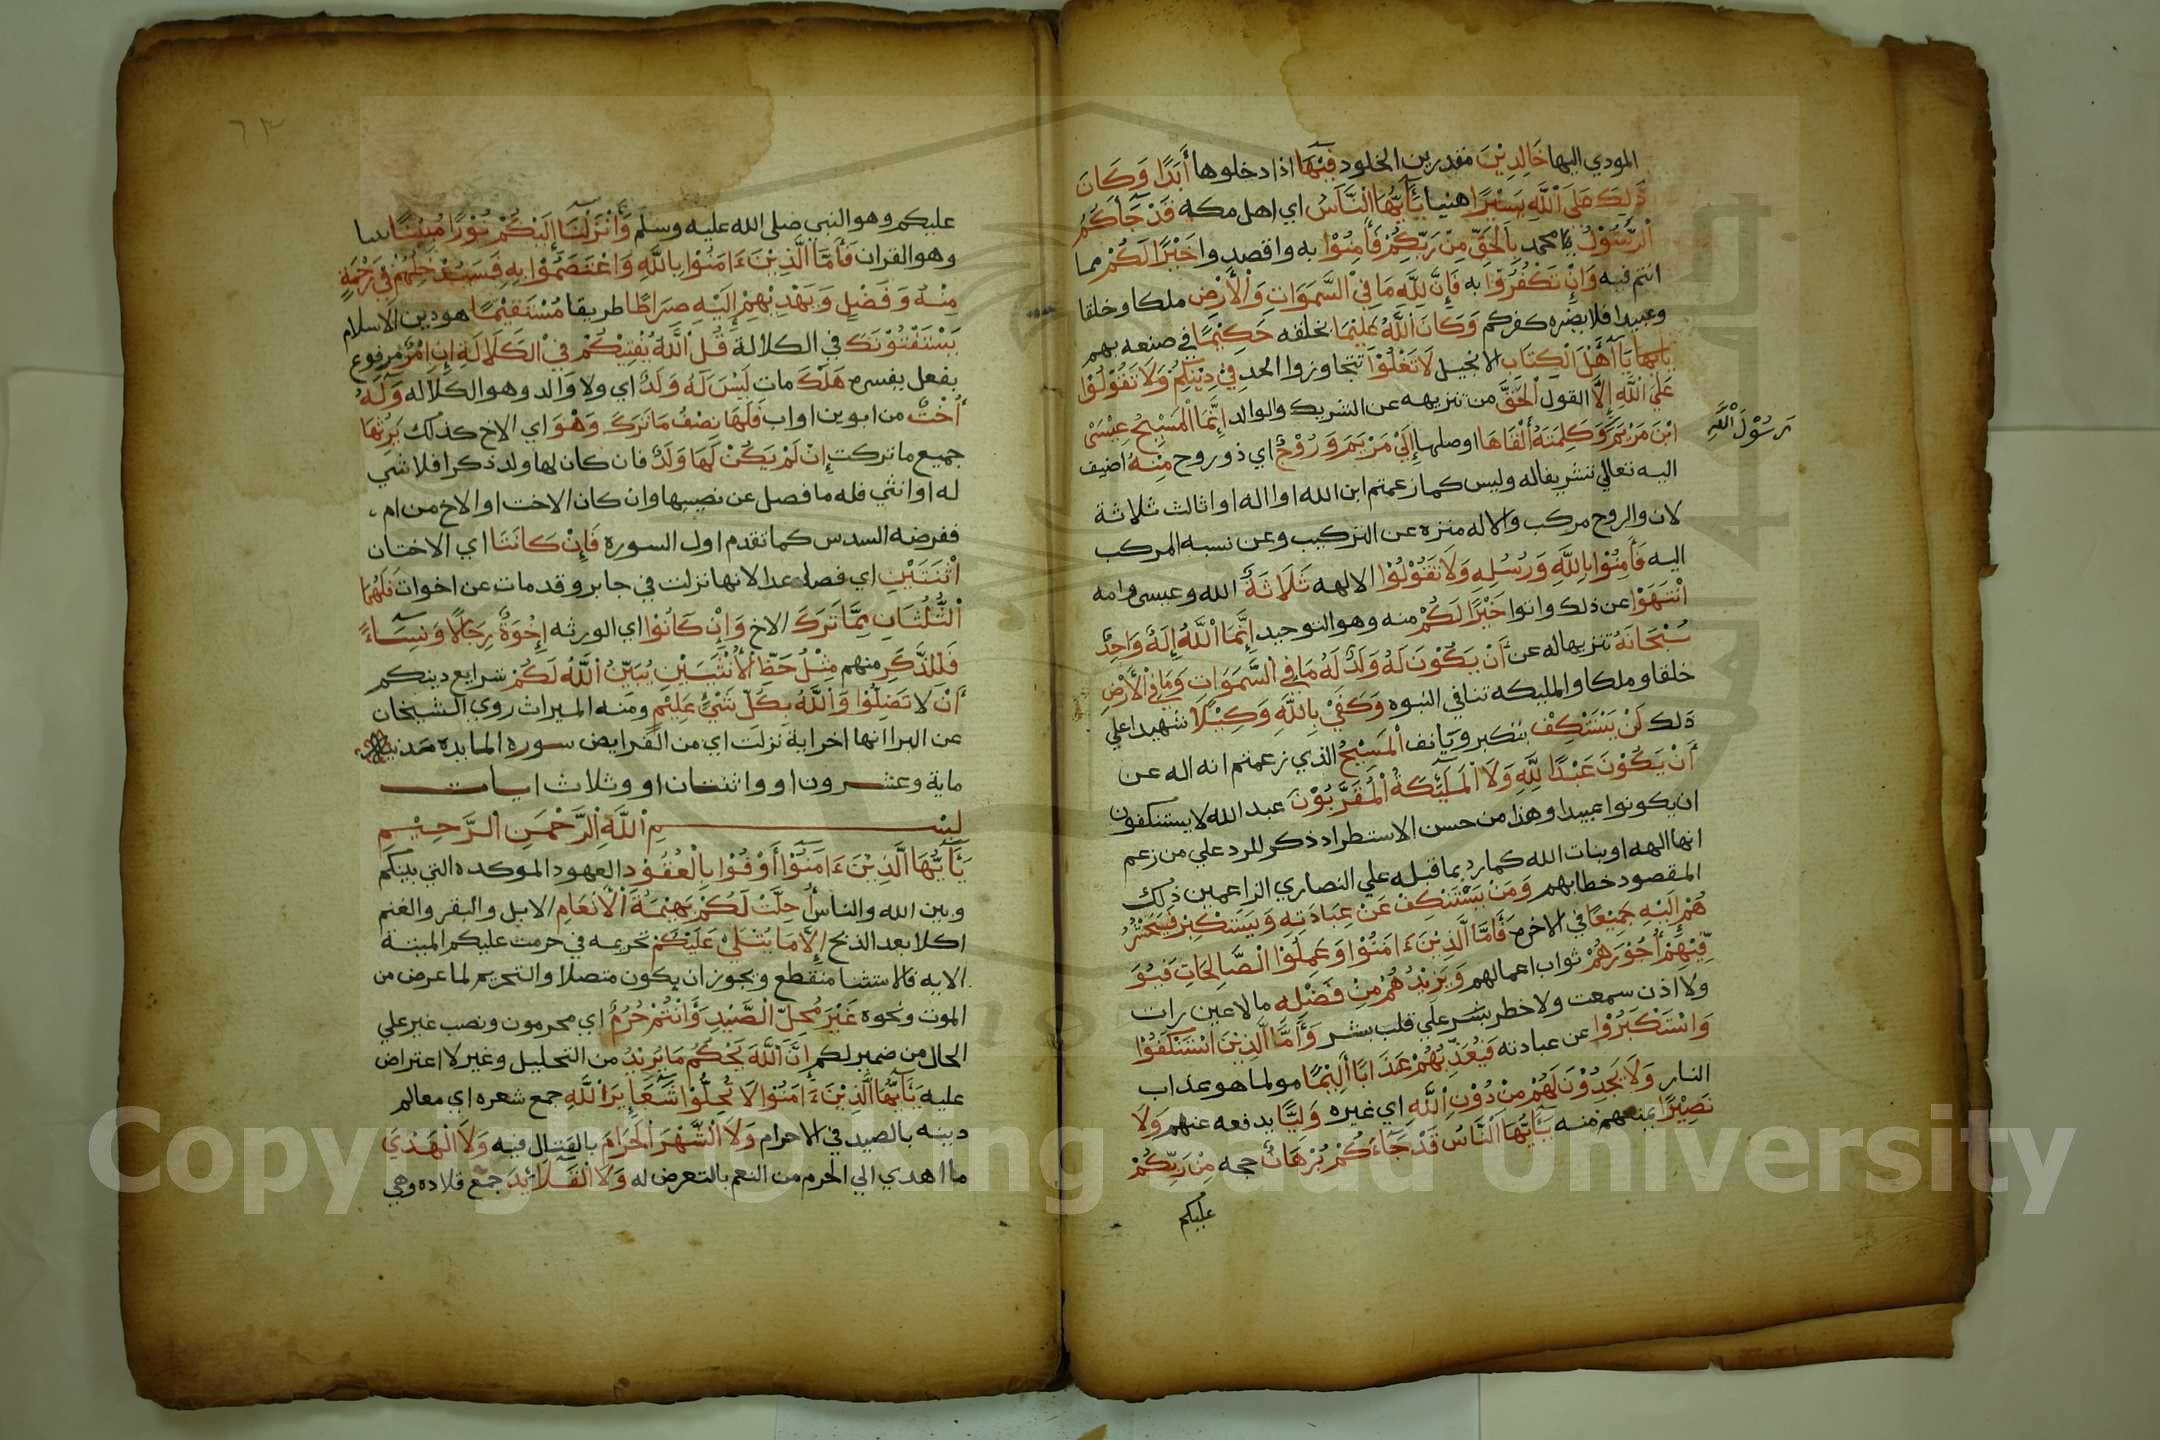 المودي اليها خَالِدِيْنَ مقدرين الخلود فِيْهَا اذا دخلوها أَبَدًا وَكَانَ
ذَلِكَ عَلَى اللَّهِ يَسِيْرًا هنيا يَأَيُّهَا النَّاسُ اي اهل مكه قَدْ جَاكُمُ
الرَّسُوْلُ محمد بِالحَقِّ مِنْ رَبِّكُمْ فَأَمِنُوْا به واقصدوا خَيْرًا لَكُمْ مما
انتم فيه وَاِنْ تَكْفُرُوْا به فَاِنَّ لِلَّهِ مَا فِي السَّمَوَاتِ وَالْأَرْضِ ملكا وخلقا
وعبيدا فلا يضره كفركم وَكَانَ اللَّهُ عَلِيْمًا بخلقه حَكِيْمًا في صنعه بهم
يَا أَهْلَ الْكِتَابِ الانجيل لَا تَغْلُوْا تتجاوزوا الحد فِي دِيْنِكُمْ وَلَا تَقُوْلُوْا
عَلَى اللَّهِ إِلَّا القول الْحَقَّ من تنزيهه عن الشريك والوالد إِنَّمَا الْمَسِيْحُ عِيْسَى
ابْنُ مَرْيَمَ وَكَلِمَتَهُ أَلْقَاهَا اوصلها إِلَى مَرْيَمَ وَرُوْحٌ اي ذو روح مِنْهُ اضيف
رَسُوْلُ اللَّهِ
اليه تعالي تشريفا له وليس كما زعمتم ابن الله او اله او ثالث ثلاثة
لان والروح مركب والاله منزه عن التركيب وعن نسبه المركب
اليه فَأَمِنُوْا بِاللَّهِ وَرُسُلِهِ وَلَا تَقُوْلُوْا الالهه ثَلَاثَةٌ الله وعيسى وامه
انْتَهَوْا عن ذلك واتوا خَيْرًا لَكُمْ منه وهو التوحيد إِنَّمَا اللَّهُ إِلَهٌ وَاحِدٌ
سُبْحَانَهُ تنزيها له عن أَنْ يَكُوْنَ لَهُ وَلَدٌ لَهُ مَا فِي السَّمَوَاتِ وَمَا فِي الْأَرْضِ
خلقا وملكا والمليكه تنافي النبوه وَكَفَى بِاللَّهِ وَكِيْلًا شهيدا علي
ذلك لَنْ يَسْتَنْكِفَ يتكبر ويانف الْمَسِيْحُ الذي زعمتم انه اله عن
أَنْ يَكُوْنَ عَبْدًا لِلَّهِ وَلَا الْمَلَئِكَةُ الْمُقَرَّبُوْنَ عبد الله لا يستنكفون
ان يكونوا عبيدا وهذا من حسن الاستطراد ذكر للرد علي من زعم
انها الهه او بنات الله كما رد بما قبله علي النصاري الزاعمين ذلك
المقصود خطابهم وَمَنْ يَسْتَنْكِفْ عَنْ عِبَادَتِهِ وَيَسْتَكْبِرْ فَسَيَحْشُرُ
هُمْ إِلَيْهِ جَمِيْعًا في الاخره فَأَمَّا الَّذِيْنَ ءَامَنُوْا وَعَمِلُوْا الصَّالِحَاتِ فَيُوَ
فِّيْهِمْ أُجُوْرَهُمْ ثواب اعمالهم وَيَزِيْدُهُمْ مِنْ فَضْلِهِ ما لا عين رات
ولا اذن سمعت ولا خطر علي قلب بشر وَأَمَّا الَّذِيْنَ اسْتَنْكَفُوْا
وَاسْتَكْبَرُوْا عن عبادته فَيُعَذِّبُهُمْ عَذَابًا أَلِيْمًا مولما هو عذاب
النار وَلَا يَجِدُوْنَ لَهُمْ مِنْ دُوْنِ اللَّهِ اي غيره وَلِيًّا يدفعه عنهم وَلَا
نَصِيْرًا يمنعهم منه يَأَيُّهَا النَّاسُ قَدْ جَاءَكُمْ بُرْهَانٌ حجه مِنْ رَبِّكُمْ
عليكم
٦٣
عليكم وهو النبي صلى الله عليه وسلم وَأَنْزَلْنَا إِلَيْكُمْ نُوْرًا مُبِيْنًا بينا
وهو القران فَأَمَّا الَّذِيْنَ ءَامَنُوْا بِاللَّهِ وَاعْتَصَمُوْا بِهِ فَسَيُدْخِلُهُمْ فِي رَحْمَةٍ
مِنْهُ وَفَضْلٍ وَيَهْدِيْهِمْ إِلَيْهِ صِرَاطًا طريقا مُسْتَقِيْمًا هو دين الاسلام
يَسْتَفْتُوْنَكَ في الكلالة قُلِ اللَّهُ يُفْتِيْكُمْ فِي الْكَلَالَةِ إِنِ امْرُؤٌ مرفوع
بفعل يفسره هَلَكَ مات لَيْسَ لَهُ وَلَدٌ اي ولا والد وهو الكلاله وَلَهُ
أُخْتٌ من ابوين او اب فَلَهَا نِصْفُ مَا تَرَكَ وَهُوَ اي الاخ كذلك يَرِثُهَا
جميع ما تركت إِنْ لَمْ يَكُنْ لَهَا وَلَدٌ فان كان لها ولد ذكر فلا شي
له او انثي فله ما فصل عن نصيبها وان كان الاخت او الاخ من ام
ففرضه السدس كما تقدم اول السوره فَإِنْ كَانَتَا اي الاختان
اثْنَتَيْنِ اي فصاعدا لانها نزلت في جابر وقد مات عن اخوات فَلَهُمَا
الثُّلُثَانِ مِمَّا تَرَكَ الاخ وَإِنْ كَانُوْا اي الورثه إِخْوَةٌ رِجَالًا وَنِسَاءً
فَلِلذَّكَرِ منهم مِثْلُ حَظِّ الْأُنْثَيَيْنِ يُبَيِّنُ اللَّهُ لَكُمْ شرايع دينكم
أَنْ لَا تَضِلُّوْا وَاللَّهُ بِكُلِّ شَيْءٍ عَلِيْمٌ ومنه الميراث روي الشيخان
عن البرا انها اخر اية نزلت اي من الفرايض سورة المايده مدنيه
ماية وعشرون او واثنتان او وثلاث ايات
بِسْمِ اللَّهِ الرَّحْمَنِ الرَّحِيْمِ
يَأَيُّهَا الَّذِيْنَ ءَامَنُوْا أَوْفُوْا بِالْعُقُوْدِ العهود الموكده التي بينكم
وبين الله والناس أُحِلَّتْ لَكُمْ بَهِيْمَةُ الْأَنْعَامِ الابل والبقر والغنم
اكلا بعد الذبح إِلَّا مَا يُتْلَى عَلَيْكُمْ تحريمه في حرمت عليكم الميتة
الايه فالاستثنا منقطع ويجوز ان يكون متصلا والتحريم لما عرض من
الموت ونحوه غَيْرَ مُحِلِّي الصَّيْدِ وَأَنْتُمْ حُرُمٌ اي محرمون ونصب غير علي
الحال من ضمير لكم إِنَّ اللَّهَ يَحْكُمُ مَا يُرِيْدُ من التحليل وغيره لا اعتراض
عليه يَأَيُّهَا الَّذِيْنَ ءَامَنُوْا لَا تُحِلُّوْا شَعَايِرَ اللَّهِ جمع شعره اي معالم
دينه بالصيد في الاحرام وَلَا الشَّهْرَ الْحَرَامَ بالقتال فيه وَلَا الْهَدْيَ
ما اهدي الي الحرم من النعم بالتعرض له وَلَا الْقَلَائِدَ جمع قلاده وهي
Copyright © King Saud University